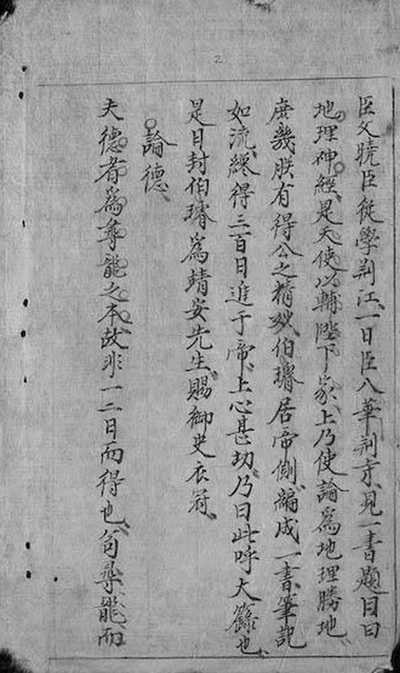 2
臣父曉臣從學荆江一日臣入華荆寺見一書題目曰
地理神經是天使以輔陛下家上乃使論爲地理勝地
庶幾朕有得公之精妙伯璿居帝側編成一書筆記
如流纔得三百日進于帝上心甚切乃曰此呼大籙也
是日封伯璿爲靖安先生賜御史衣冠
論德
夫德者爲尋龍之本故非一二日而得也苟尋龍而